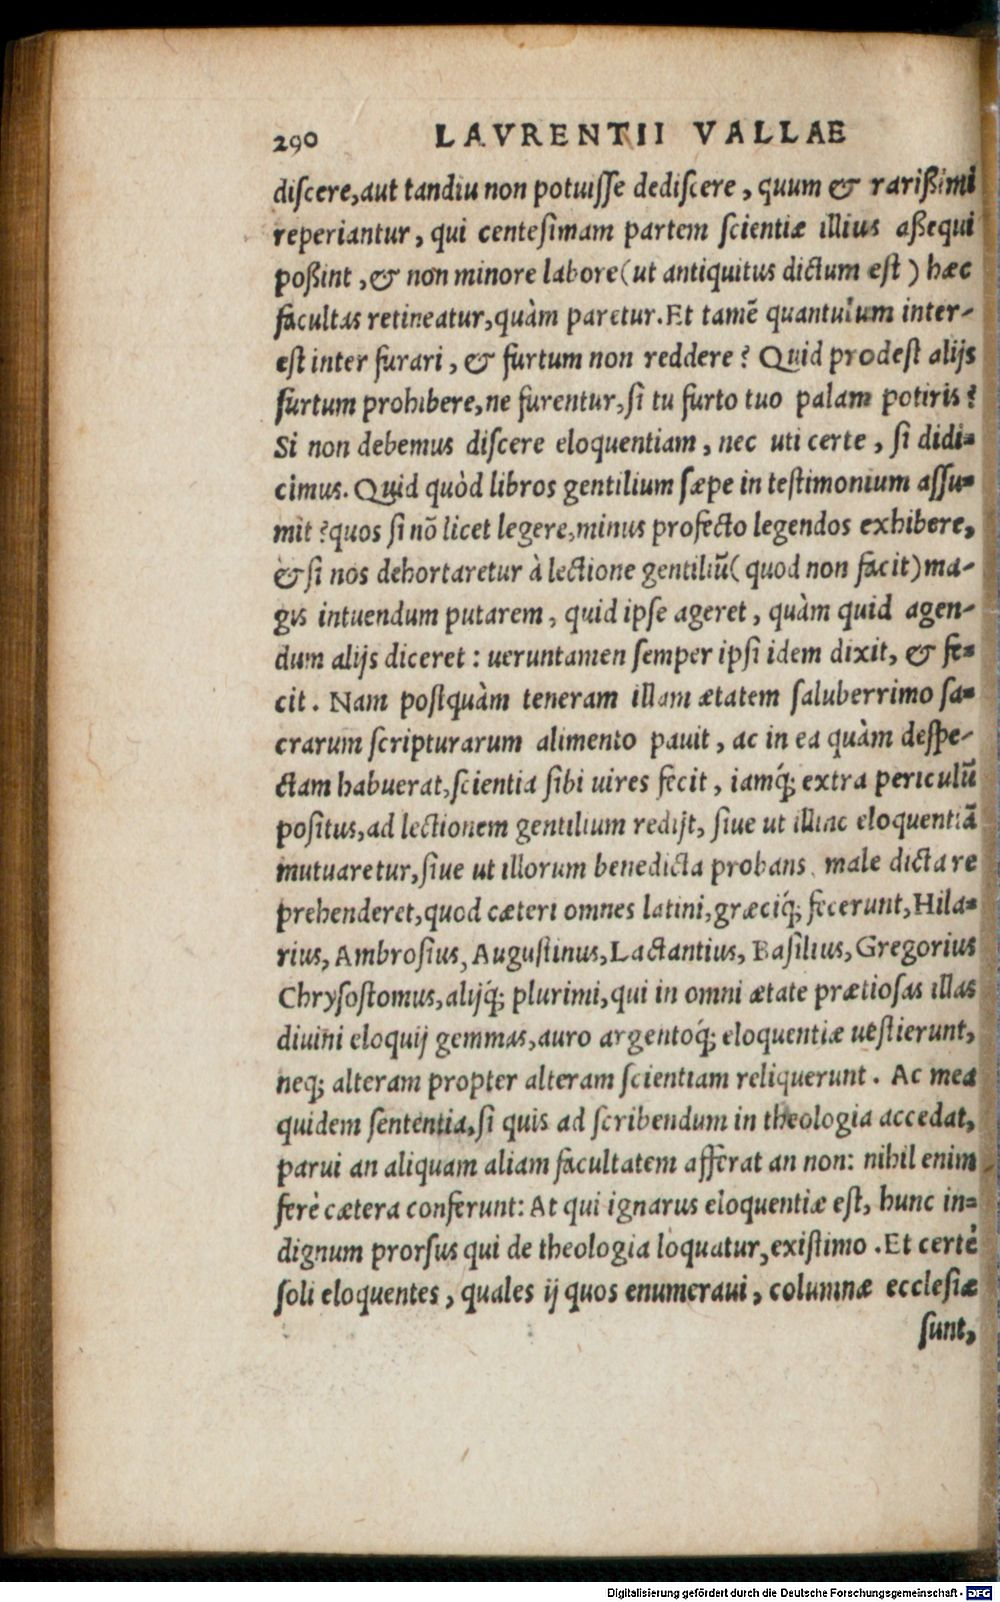 290 LAVRENTII VALLAE
diſcere,aut tandiu non potuiſſe dediſcere, quum & rarißimi
reperiantur, qui centeſimam partem ſcientiæ illius aßequi
poßint,& non minore labore(ut antiquitus dictum eſt) hæc
facultas retineatur,quàm paretur.Et tamē quantulum inter-
eſt inter furari, & furtum non reddere? Quid prodeſt alijs
furtum prohibere,ne furentur,ſi tu furto tuo palam potiris?
Si non debemus diſcere eloquentiam, nec uti certe, ſi didi-
cimus. Quid quòd libros gentilium ſæpe in teſtimonium aſſu-
mit?quos ſi nō licet legere,minus profecto legendos exhibere,
& ſi nos dehortaretur à lectione gentiliū(quod non facit)ma-
gis intuendum putarem, quid ipſe ageret, quàm quid agen-
dum alijs diceret: ueruntamen ſemper ipſi idem dixit, & fe-
cit. Nam poſtquàm teneram illam ætatem ſaluberrimo ſa-
crarum ſcripturarum alimento pauit, ac in ea quàm deſpe-
ctam habuerat,ſcientia ſibi uires fecit, iamq́; extra periculū
poſitus,ad lectionem gentilium redijt, ſiue ut illinc eloquentiā
mutuaretur,ſiue ut illorum benedicta probans, male dicta re
prehenderet,quod cæteri omnes latini,græciq́; fecerunt,Hila-
rius, Ambroſius, Auguſtinus,Lactantius, Baſilius,Gregorius
Chryſoſtomus,alijq́; plurimi,qui in omni ætate prætioſas illas
diuini eloquij gemmas,auro argentoq́; eloquentiæ ueſtierunt,
neq; alteram propter alteram ſcientiam reliquerunt. Ac mea
quidem ſententia,ſi quis ad ſcribendum in theologia accedat,
parui an aliquam aliam facultatem afferat an non: nihil enim
ferè cætera conferunt: At qui ignarus eloquentiæ eſt, hunc in-
dignum prorſus qui de theologia loquatur,exiſtimo.Et certè
ſoli eloquentes, quales ij quos enumeraui, columnæ eccleſiæ
ſunt,
Digitalisierung gefördert durch die Deutsche Forschungsgemeinschaft - DFG